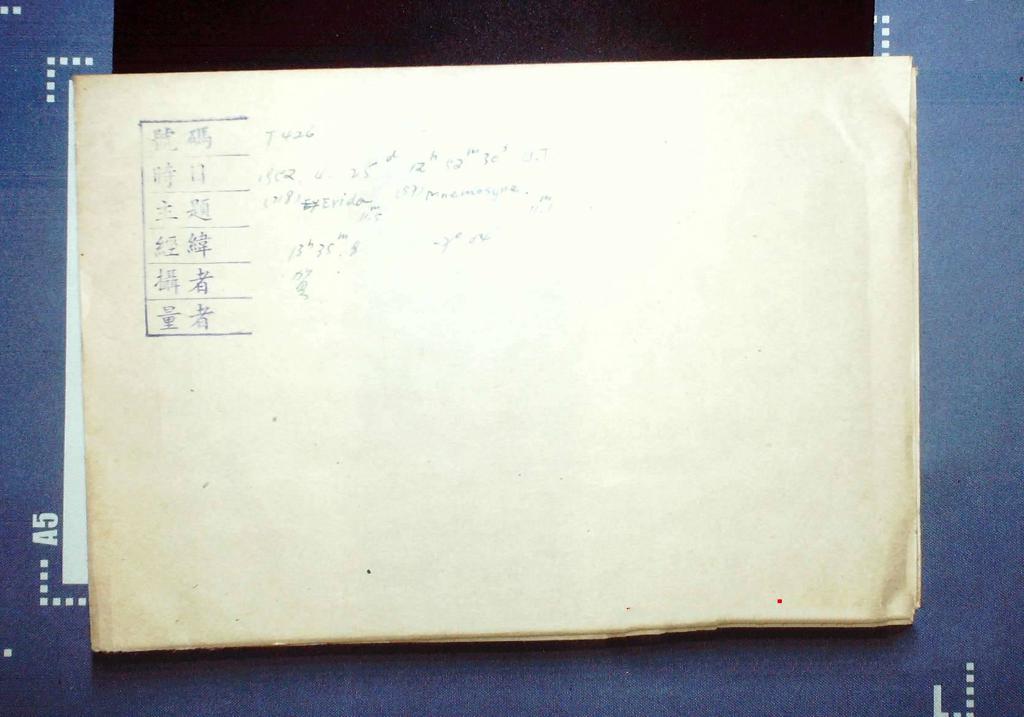 號碼 T426
時日 1952. 4. 25ᵈ 12ʰ 52ᵐ 30ˢ U.T
主題 (718) Erida 11.5ᵐ (57) Mnemosyne. 11.1ᵐ
經緯 13ʰ35ᵐ.8 -7° 04
攝者
量者
A5